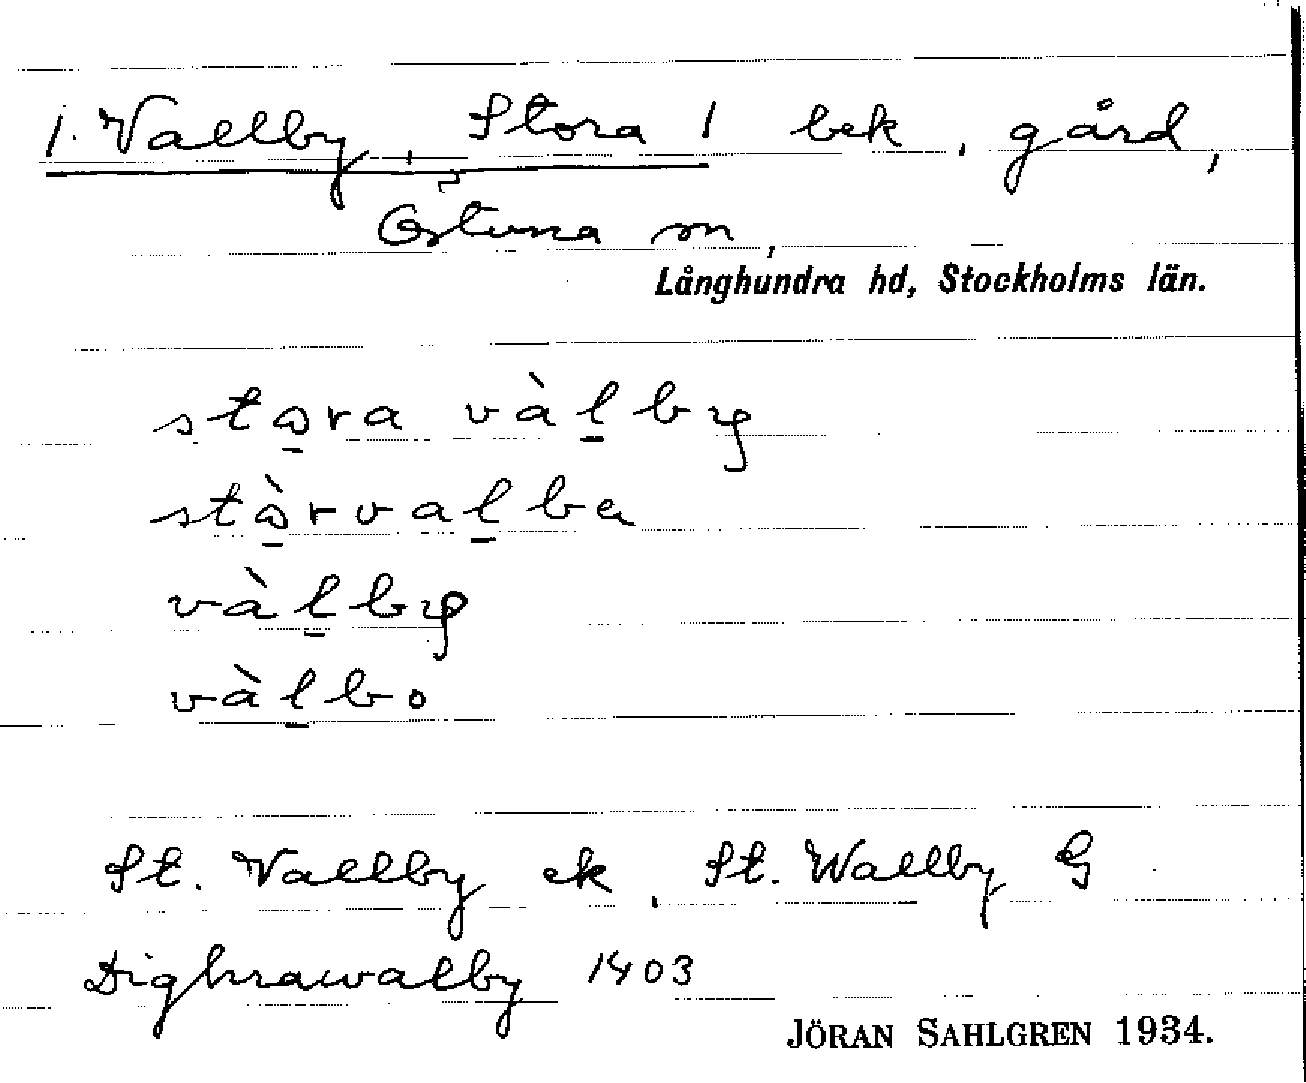 1. Vallby, Stora 1 bek, gård,
Östuna sn,
Långhundra hd, Stockholms län.
stɷ̠ra vàl̠by
stɷ̠̀rval̠ba
vàl̠by
vàl̠bo
St. Vallby ek, St. Wallby G
Dighrawalby 1403
JÖRAN SAHLGREN 1934.